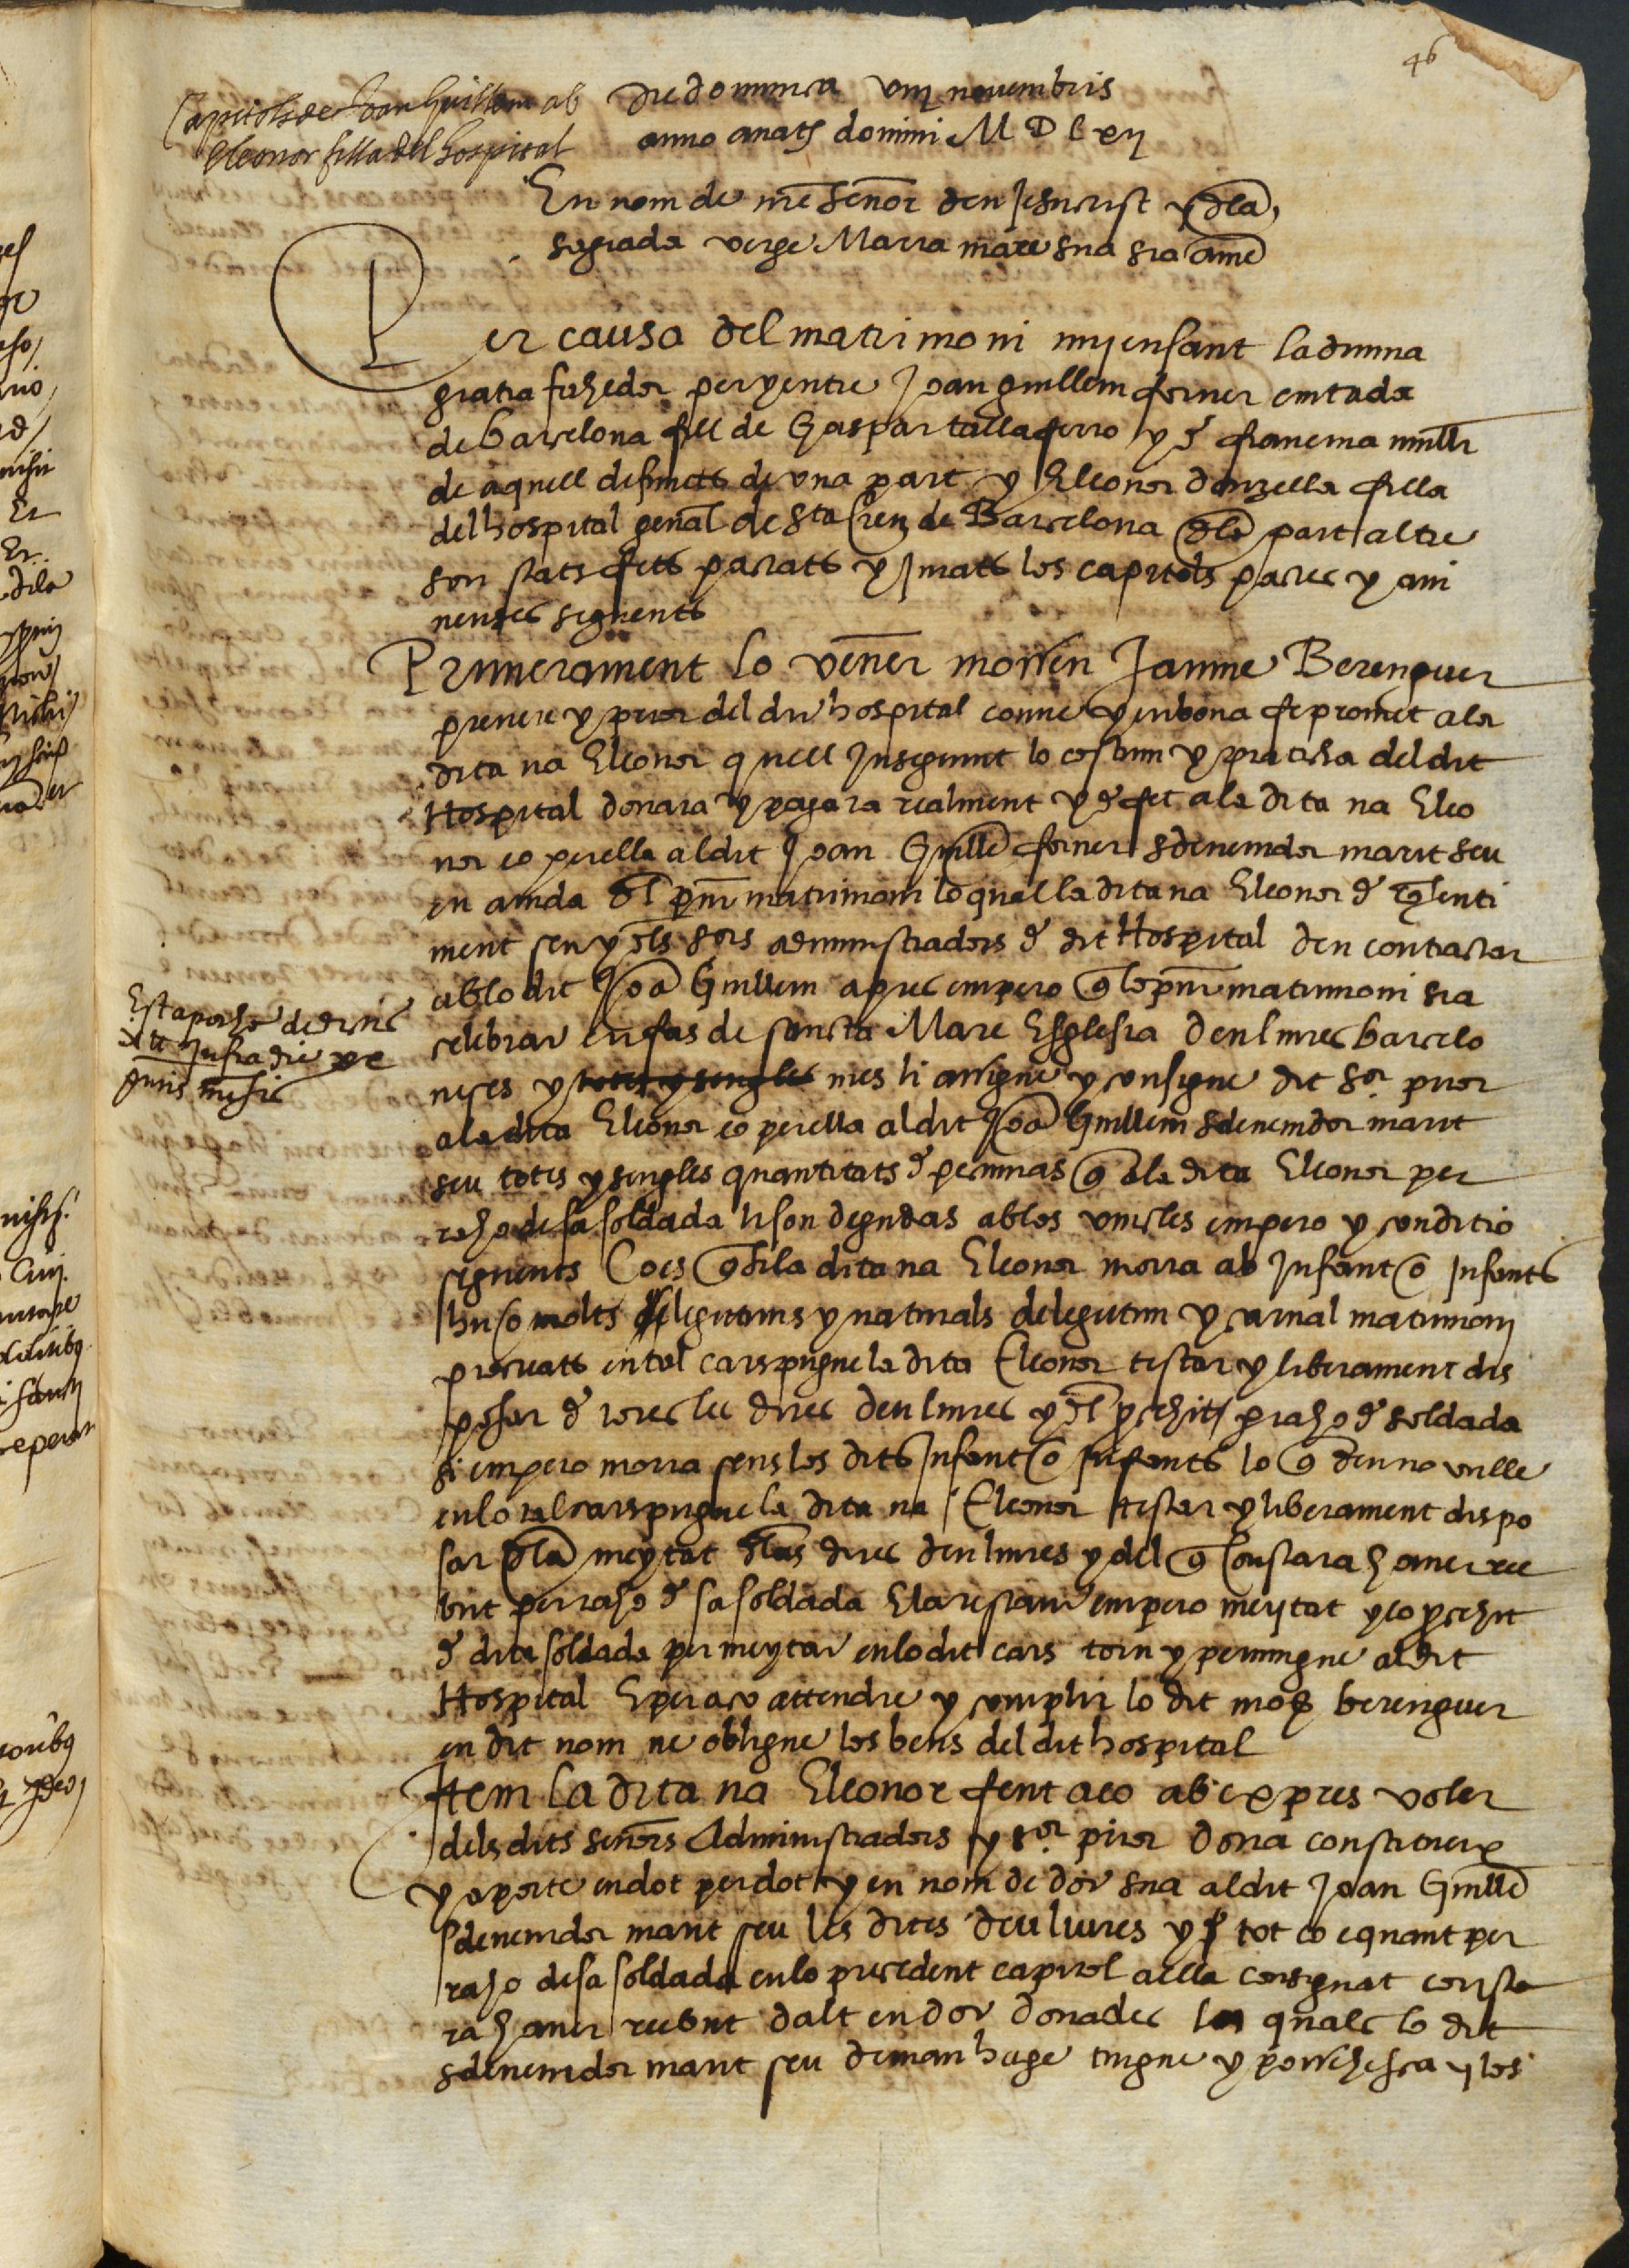 46
Capitols de Joan Guillem ab
Eleonor filla del hospital
Die dominica viij novembris
anno a natt domini M D L xij
En nom de nre senor deu Jesucrist y dla
sagrada verge Maria mare sua sia ame
Per causa del matrimoni mijensant la divina
gratia fahedor per y entre Joan guillem forner ciutada
de barcelona fill de Gaspar tallaferro y d francina mullr
de aquell defuncts de una part y Eleonor donzella filla
del hospital genal de Sta Creu de Barcelona dla part altre
son stats fets pactats y firmats los capitols pactes y avi
nenses seguents
Primerament lo vener mossen Jaume Berenguer
prevere y prior del dit hospital conve y en bona fe promet a la
dita na Eleonor quell Inseguint lo costum y practicha del dit
Hospital donara y pagara realment y d fet a la dita na Eleo
nor eo per ella al dit Joan Guille forner sdevenidor marit seu
en aiuda dl pnt matrimoni lo qual la dita na Eleonor d consenti
ment seu y dls sors administradors d dit Hospital deu contractar
ab lo dit Joa Guillem apres empero q lo pnt matrimoni sia
celebrat en fas de sancta Mare Esglesia deu liures barcelo
neses y totes y sengles mes li assigne y consigne dit sor prior
a la dita Eleonor eo per ella al dit Joa Guillem sdevenidor marit
seu totes y sengles quantitats d pecunias q a la dita Eleonor per
raho de sa soldada li son degudas ab los vincles empero y conditio
seguents Ço es q si la dita na Eleonor morra ab Infant o Infants
hu o molts legitims y naturals de legitim y carnal matrimoni
procreats en tal cars pugue la dita Eleonor testar y liberament dis
posar d totes les dites deu liures y dl prehit p raho d soldada
si empero morra sens los dits Infant o Infants lo q deu no vulle
en lo tal cars pugue la dita na Eleonor testar y liberament dispo
sar dla meytat dlas dites deu liures y del q constara haver rce
but per raho d sa soldada E la restant empero meytat y eo prehit
d dita soldada per meytat en lo dit cars torn y pervingue al dit
Hospital E per aço attendre y complir lo dit mo berenguer
en dit nom ne obligue los bens del dit hospital
Item la dita na Eleonor fent aço ab expres voler
dels dits senors Administradors y sor prior dona constituex
y aporte en dot per dot y en nom de dot sua al dit Joan Guille
sdevenidor marit seu les dites deu liures y tot ço e quant per
raho de sa soldada en lo precedent capitol a ella consignat consta
ra haver rebut dalt en dot donades los quals lo dit
sdevenidor marit seu deman hage tingue y possehesca y los